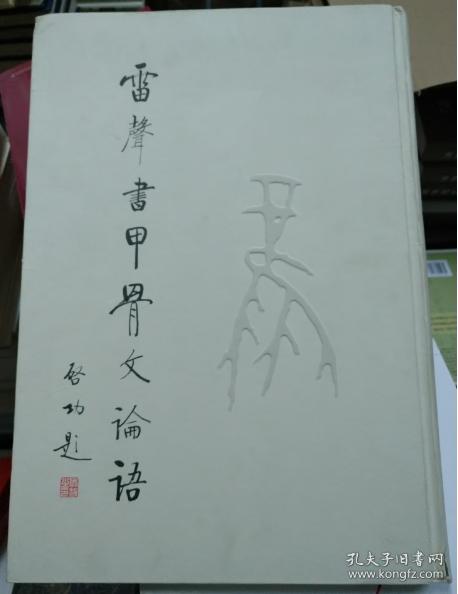 雷聲書甲骨文論語
啓功題
孔夫子旧书网
www.kongfz.com